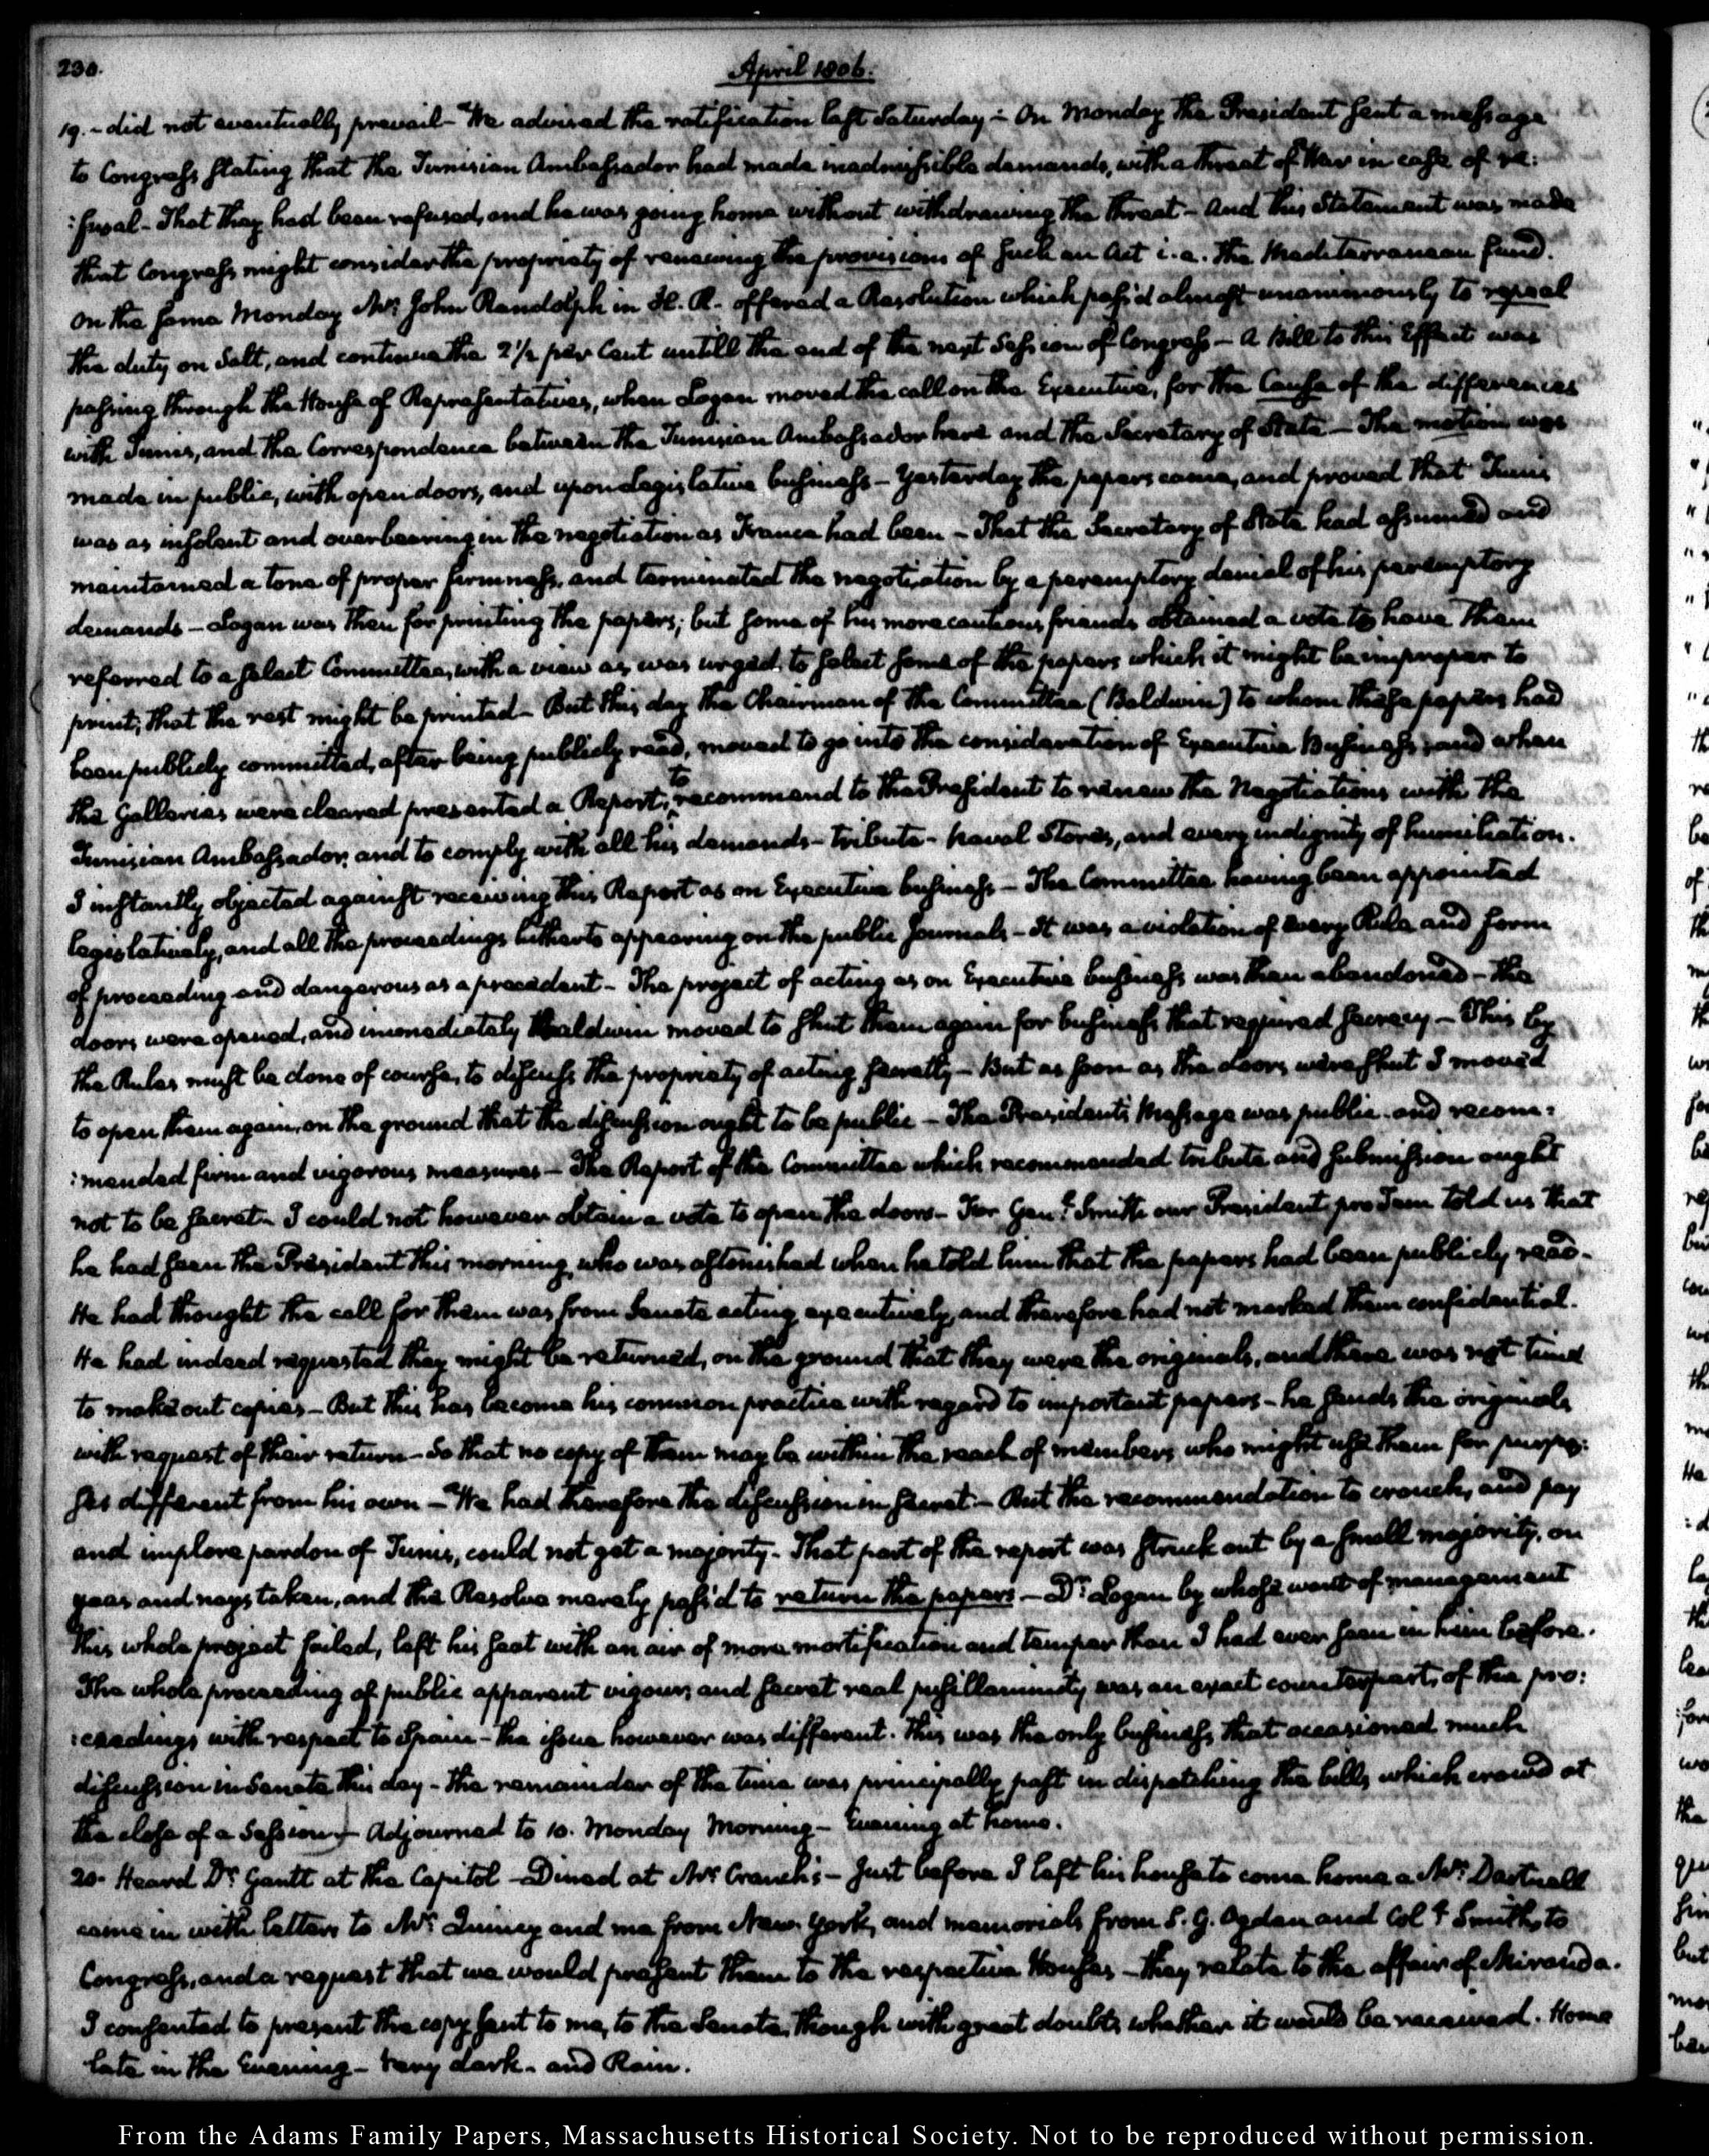 230.
April 1806.
19. - did not eventually prevail - We advised the ratification last Saturday - On Monday the President sent a message
to Congress stating that the Tunisian Ambassador had made inadmissible demands, with a threat of War in case of re:
:fusal - That they had been refused, and he was going home without withdrawing the threat - And this Statement was made
that Congress might consider the propriety of renewing the provisions of such an Act i.e. the Mediterranean fund.
On the same Monday Mr: John Randolph in H. R. offered a Resolution which pass'd almost unanimously to repeal
the duty on Salt, and continue the 2 1/2 per Cent untill the end of the next Session of Congress - A Bill to this Effect was
passing through the House of Representatives, when Logan moved the call on the Executive, for the Cause of the differences
with Tunis, and the Correspondence between the Tunisian Ambassador here and the Secretary of State - The motion was
made in public, with open doors, and upon Legislative business - Yesterday the papers came, and proved that Tunis
was as insolent and overbearing in the negotiation as France had been - That the Secretary of State had assumed and
maintained a tone of proper firmness, and terminated the negotiation by a peremptory denial of his peremptory
demands - Logan was then for printing the papers; but some of his more cautious friends obtained a vote to have them
referred to a select Committee, with a view as was urged, to select some of the papers which it might be improper to
print, that the rest might be printed - But this day the Chairman of the Committee (Baldwin) to whom these papers had
been publicly committed, after being publicly read, moved to go into the consideration of Executive Business; and when
the Galleries were cleared presented a Report, to recommend to the President to renew the Negotiations with the
Tunisian Ambassador, and to comply with all his demands - tribute - naval Stores, and every indignity of humiliation.
I instantly objected against receiving this Report as on Executive business - The Committee having been appointed
legislatively, and all the proceedings hitherto appearing on the public Journals - It was a violation of every Rule and form
of proceeding and dangerous as a precedent - The project of acting as on Executive business was then abandoned - The
doors were opened, and immediately Baldwin moved to shut them again for business that required secrecy - This by
the Rules must be done of course, to discuss the propriety of acting secretly - But as soon as the doors were shut I moved
to open them again, on the ground that the discussion ought to be public - The President's Message was public and recom:
:mended firm and vigorous measures - The Report of the Committee which recommended tribute and submission ought
not to be secret - I could not however obtain a vote to open the doors - For Genl. Smith our President pro Tem told us that
he had seen the President this morning, who was astonished when he told him that the papers had been publicly read -
He had thought the call for them was from Senate acting executively, and therefore had not marked them confidential.
He had indeed requested they might be returned, on the ground that they were the originals, and there was not time
to make out copies - But this has become his common practice with regard to important papers - he sends the originals
with request of their return - So that no copy of them may be within the reach of members who might use them for purpo:
ses different from his own - We had therefore the discussion in secret - But the recommendation to crouch, and pay
and implore pardon of Tunis, could not get a majority - That part of the report was struck out by a small majority, on
yeas and nays taken, and the Resolve merely pass'd to return the papers - Dr. Logan by whose want of management
this whole project failed, left his seat with an air of more mortification and temper than I had ever seen in him before.
The whole proceeding of public apparent vigour, and secret real pusillanimity was an exact counterpart, of the pro:
:ceedings with respect to Spain - the issue however was different. This was the only business that occasioned much
discussion in Senate this day - the remainder of the time was principally past in dispatching the bills which crowd at
the close of a Session - Adjourned to 10. Monday Morning - Evening at home.
20. Heard Dr. Gantt at the Capitol - Dined at Mr Cranch's - Just before I left his house to come home a Mr:
came in with letters to Mr. Quincy and me from New York, and memorials from S. G. Ogden and Coll Smith, to
Congress, and a request that we would present them to the respective Houses - they relate to the affair of Miranda.
I consented to present the copy sent to me, to the Senate, though with great doubts whether it would be received. Home
late in the Evening - Very dark - and Rain.
From the Adams Family Papers, Massachusetts Historical Society. Not to be reproduced without permission.